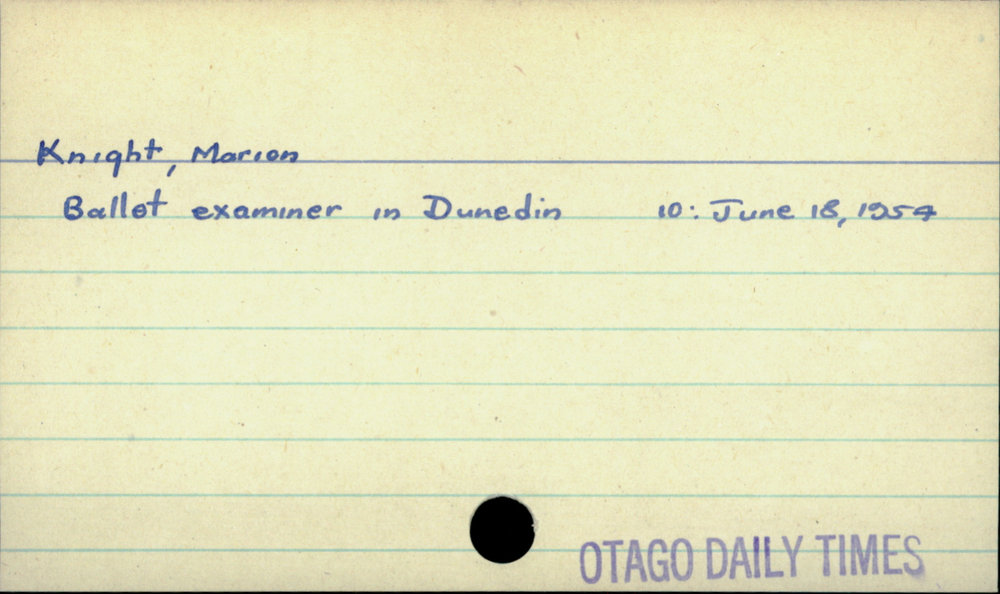 Knight, Marion
Ballet examiner in Dunedin 10: June 18, 1954
OTAGO DAILY TIMES